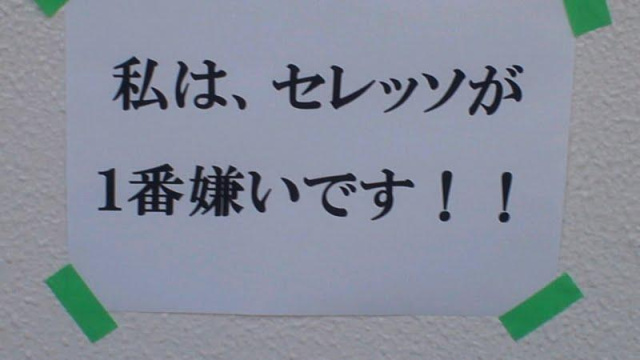 私は、セレッソが
1番嫌いです！！